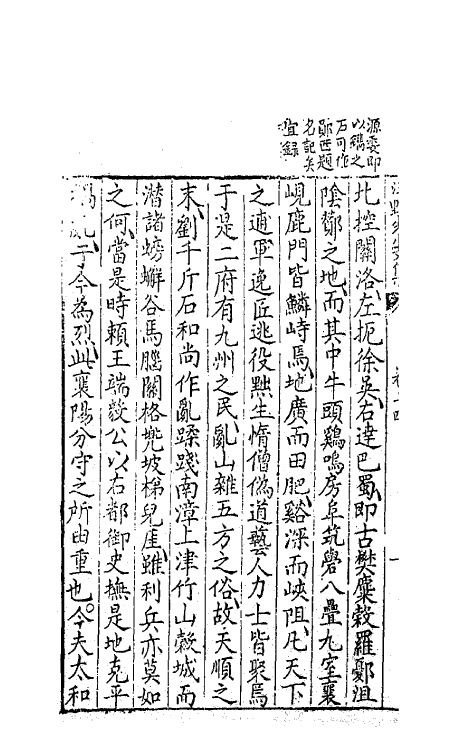 源委即
以鐫之
石可作
鄖西題
名記矣
宜錄
北控關洛左扼徐吳右達巴蜀即古樊麋穀羅鄾沮
陰鄼之地而其中牛頭鷄鳴房阜筑礐八疊九室襄
峴鹿門皆鱗峙焉地廣而田肥谿深而峽阻凡天下
之逋軍逸匠逃役㸃生惰僧僞道藝人力士皆聚焉
于是二府有九州之民亂山雜五方之俗故天順之
末劉千斤石和尚作亂蹂踐南漳上津竹山穀城而
潛諸螃蠏谷馬腦關格兠坡梯兒崖雖利兵亦莫如
之何當是時賴王端毅公以右都御史撫是地克平
禍亂于今為烈此襄陽分守之所由重也今夫太和